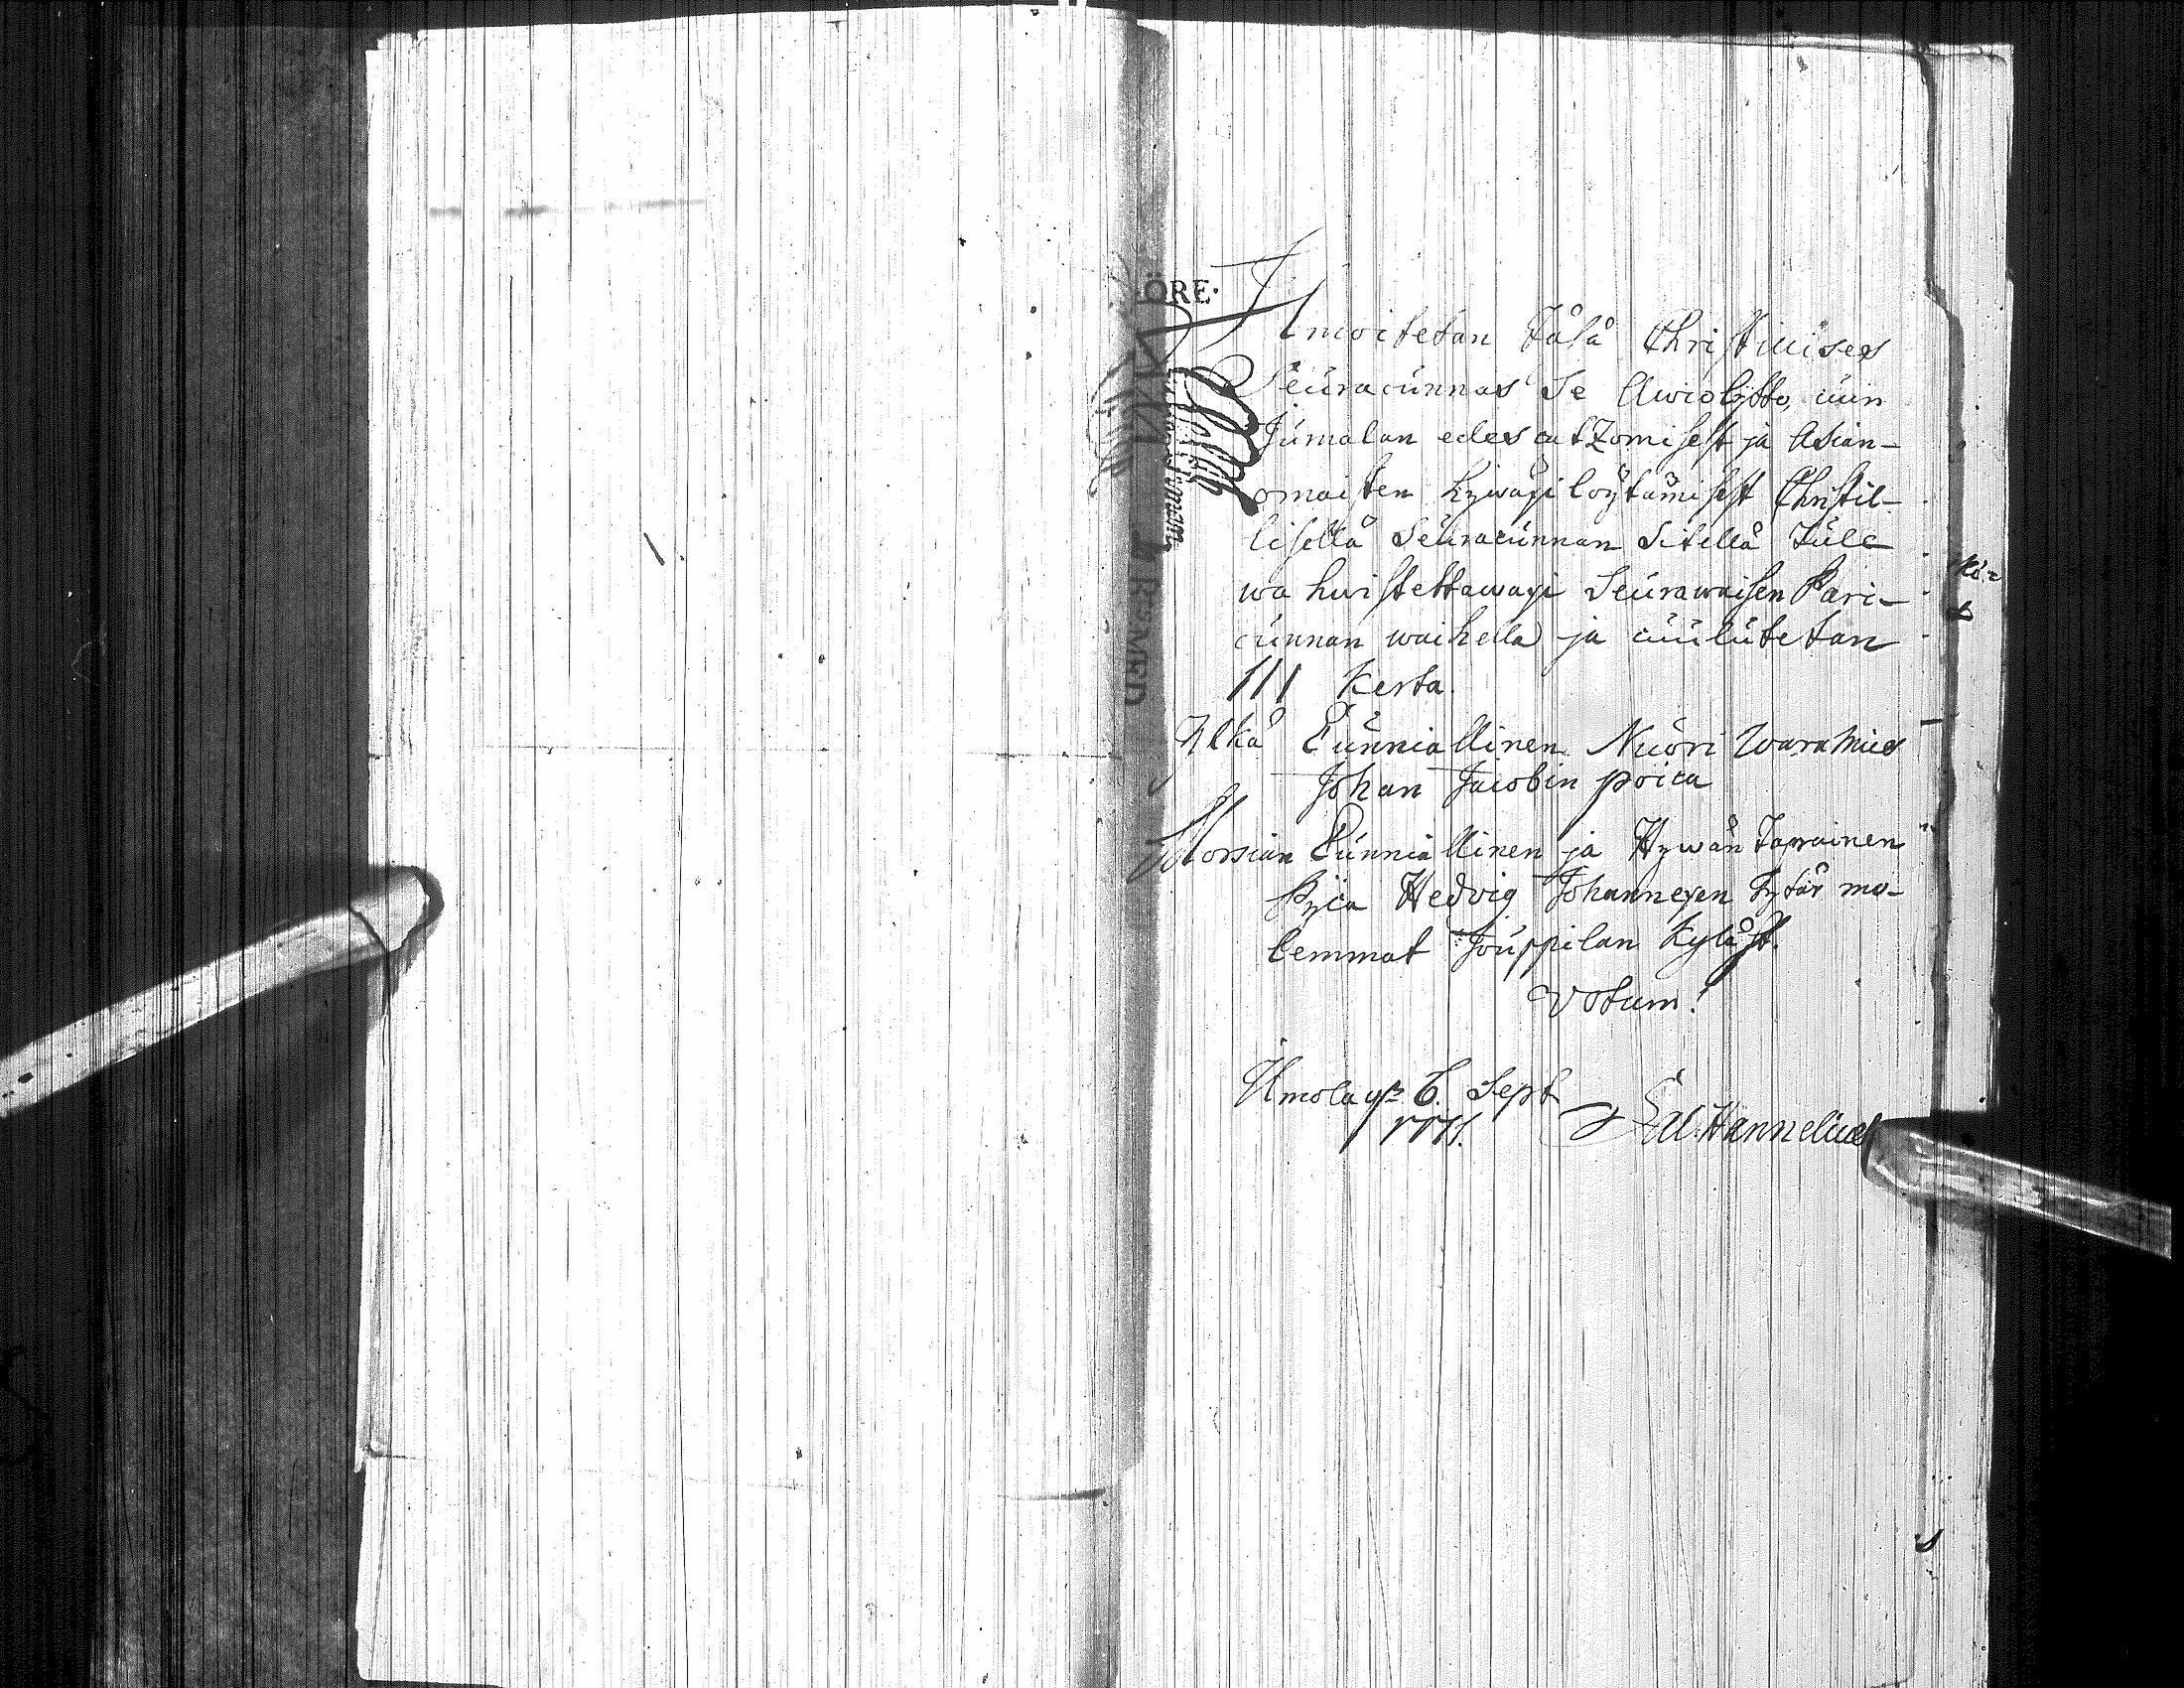 ÖRE.
Ilmoitetan täsä Christillises
Seuracunnas se Awioljtto, cuin
Jumalan edescatzomisest ja Asian-
omaisten hywäxi löytämisest Christil-
lisellä Seuracunnan sitellä tule
wahwistettawaxi Seurawaisen Pari-
cunnan waihella ja cuulutetan
III Kerta.
Ylkä Cunniallinen Nuori Waramies
Johan Jacobin poica
Morsian Cunniallinen ja Hywän Tawainen
Pijca Hedvig Johannexen Tytär mo-
lemmat Jouppilan Kyläst.
Votum!
Ilmola 6. Sept
Hannelius